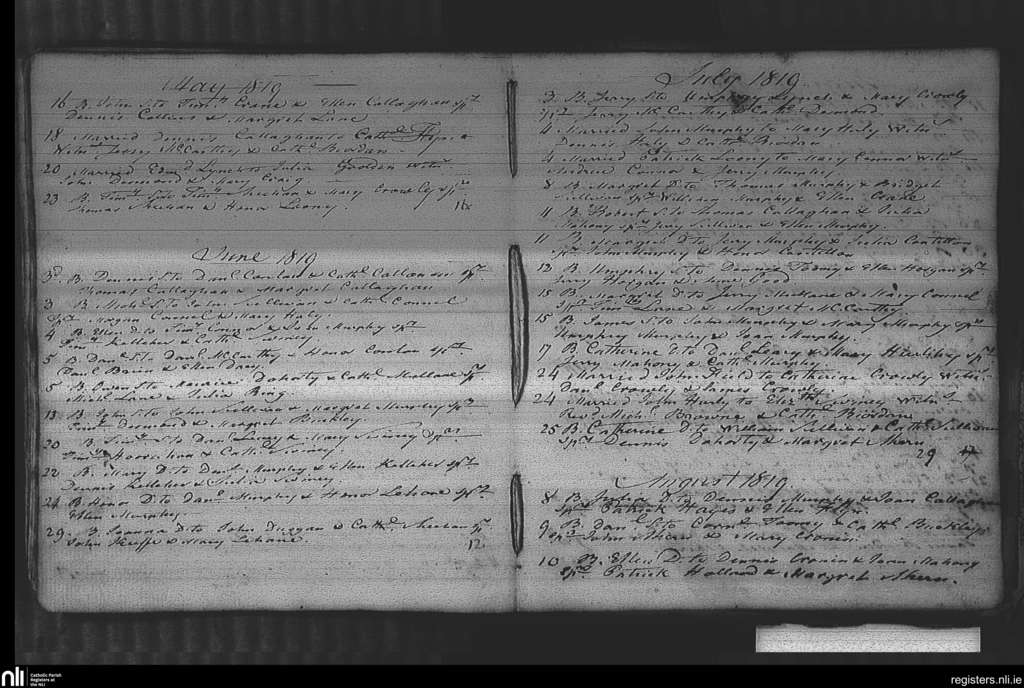 May 1819
16 B. John S. to Timy Crane & Ellen Callaghan spt
Dennis Collins & Margret Lane
18 Married Dennis Callaghan to Cathe
Witns Jerry McCarthy & Cathe Riordan
20 Married Edmd Lynch to Julia Witns
John Desmond & Mary
23 B. Timy S. to Timy Sheehan & Mary Crowley spt
Thomas Sheehan & Honor Leary.
June 1819
3d B. Dennis S. to Danl Conlon & Cathe Callaghan spt
Thomas Callaghan & Margret Callaghan
3 B. S. to John Sullivan & Cathe Connell
spt Morgan Connell & Mary Haly.
4 B. Ellen D. to Timy & Murphy spt
Timy Kelleher & Cathe Swiney
5 B. Danl S. to Danl McCarthy & Honor Conlon spt
Danl Brien & Ellen Daly
5 B. Owen S. to Maurice Doherty & Cathe spt
Michl Lane & Julia Ring
13 B. John S. to John Sullivan & Margret Murphy spt
Desmond & Margret Buckley.
20 B. Timy S. to Danl Leary & Mary Swiney spt
& Cathe Swiney.
22 B. Mary D. to Danl Murphy & Ellen Kelleher spt
Dennis Kelleher & Julia Swiney.
24 B. Honor D. to Danl Murphy & Honor Lehane spt
Ellen Murphy.
29. B. D. to John Duggan & Cathe Sheehan spt
John Keeffe & Mary Lehane.
12
July 1819
3 B. Jerry S. to Humphry Lynch & Mary Crowly
spt Jerry McCarthy & Cathe Desmond.
4 Married John Murphy to Mary Haly Witns
Dennis Haly & Cathe Riordan
4 Married Patrick Leary to Mary Connor Witns
Andrew Connor & Jerry Murphy.
8 B. Margret D. to Thomas Murphy & Bridget
Sullivan spt William Murphy & Ellen
11 B. Robert S. to Thomas Callaghan & Julia
Mahony spt Jerry Sullivan & Ellen Murphy.
11 B. Margret D. to Jerry Murphy & Julia
spt John Murphy & Honor
13 B. Humphry S. to Dennis Toomy & Ellen Horgan spt
Jerry Horgan & Good
15 B. Margret D. to Jerry & Mary Connel
spt Lane & Margret McCarthy.
15 B. James S. to John & Mary Murphy spt
Humphry Murphy & Joan Murphy.
7 B. Catherine D. to Danl Leary & Mary Herlihy spt
Jerry Mahony & Cathe
24 Married John to Catherine Crowly Witns
Danl Crowly & James Crowly
24 Married John Hurly to Swiney Witns
Revd Michl Browne & Cathe Riordan
25 B. Catherine D. to William Sullivan & Cathe Sullivan
spt Dennis Dahorty & Margret Ahern
29
August 1819.
8 B. Julia D. to Dennis Murphy & Joan Callaghan
spt Patrick Hayes & Ellen
9 B. Danl S. to Corns Toomy & Cathe Buckley
spt John Ahern & Mary Cronin.
10 B. Ellen D. to Dennis Cronin & Joan Mahony
spt Patrick Holland & Margret Ahern.
nli
Catholic Parish
Registers at
the NLI
registers.nli.ie